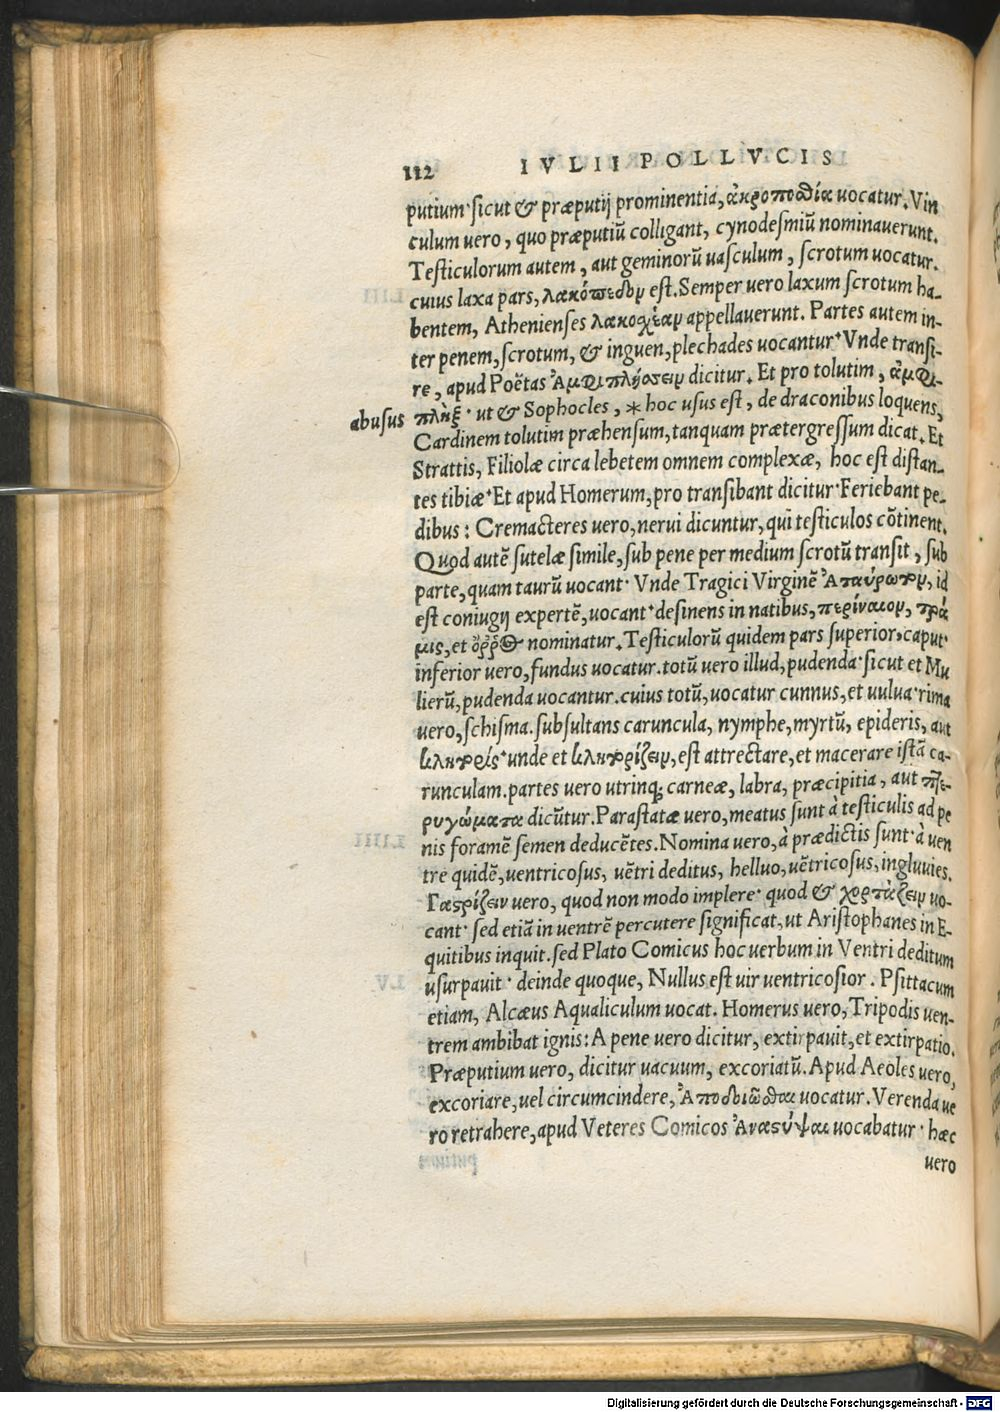 112 IVLII POLLVCIS
putium·sicut & præputij prominentia, ἀκροποσθία uocatur. Vin
culum uero, quo præputiū colligant, cynodesmiū nominauerunt.
Testiculorum autem, aut geminorū uasculum, scrotum uocatur.
cuius laxa pars, λακόπεδον est. Semper uero laxum scrotum ha-
bentem, Athenienses λακοχέαν appellauerunt. Partes autem in-
ter penem, scrotum, & inguen, plechades uocantur· Vnde transi-
re, apud Poëtas Ἀμφιπλήσσειν dicitur. Et pro tolutim, ἀμφι-
abusus πλὴξ· ut & Sophocles, * hoc usus est, de draconibus loquens,
Cardinem tolutim præhensum, tanquam prætergressum dicat. Et
Strattis, Filiolæ circa lebetem omnem complexæ, hoc est distan-
tes tibiæ· Et apud Homerum, pro transibant dicitur· Feriebant pe-
dibus: Cremacteres uero, nerui dicuntur, qui testiculos cōtinent.
Quod autē sutelæ simile, sub pene per medium scrotū transit, sub
parte, quam taurū uocant· Vnde Tragici Virginē Ἀταύρωτον, id
est coniugij expertē, uocant· desinens in natibus, περίναιον, τρά
μις, et ὄρρος nominatur. Testiculorū quidem pars superior, caput·
inferior uero, fundus uocatur. totū uero illud, pudenda· sicut et Mu
lierū, pudenda uocantur. cuius totū, uocatur cunnus, et uulua· rima
uero, schisma. subsultans caruncula, nymphe, myrtū, epideris, aut
κλητορίς· unde et κλητορίζειν, est attrectare, et macerare istā ca-
runculam. partes uero utrinq; carneæ, labra, præcipitia, aut πτε-
ρυγώματα dicūtur. Parastatæ uero, meatus sunt à testiculis ad pe
nis foramē semen deducētes. Nomina uero, à prædictis sunt· à uen
tre quidē, uentricosus, uētri deditus, helluo, uētricosus, ingluuies.
Γαστρίζειν uero, quod non modo implere· quod & χορτάζειν uo-
cant· sed etiā in uentrē percutere significat, ut Aristophanes in E-
quitibus inquit. sed Plato Comicus hoc uerbum in Ventri deditum
usurpauit· deinde quoque, Nullus est uir uentricosior. Psittacum
etiam, Alcæus Aqualiculum uocat. Homerus uero, Tripodis uen-
trem ambibat ignis: A pene uero dicitur, extirpauit, et extirpatio.
Præputium uero, dicitur uacuum, excoriatū. Apud Aeoles uero,
excoriare, uel circumcindere, Ἀποσδιῶσθαι uocatur. Verenda ue
ro retrahere, apud Veteres Comicos Ἀναστύψαι uocabatur· hæc
uero
Digitalisierung gefördert durch die Deutsche Forschungsgemeinschaft - DFG